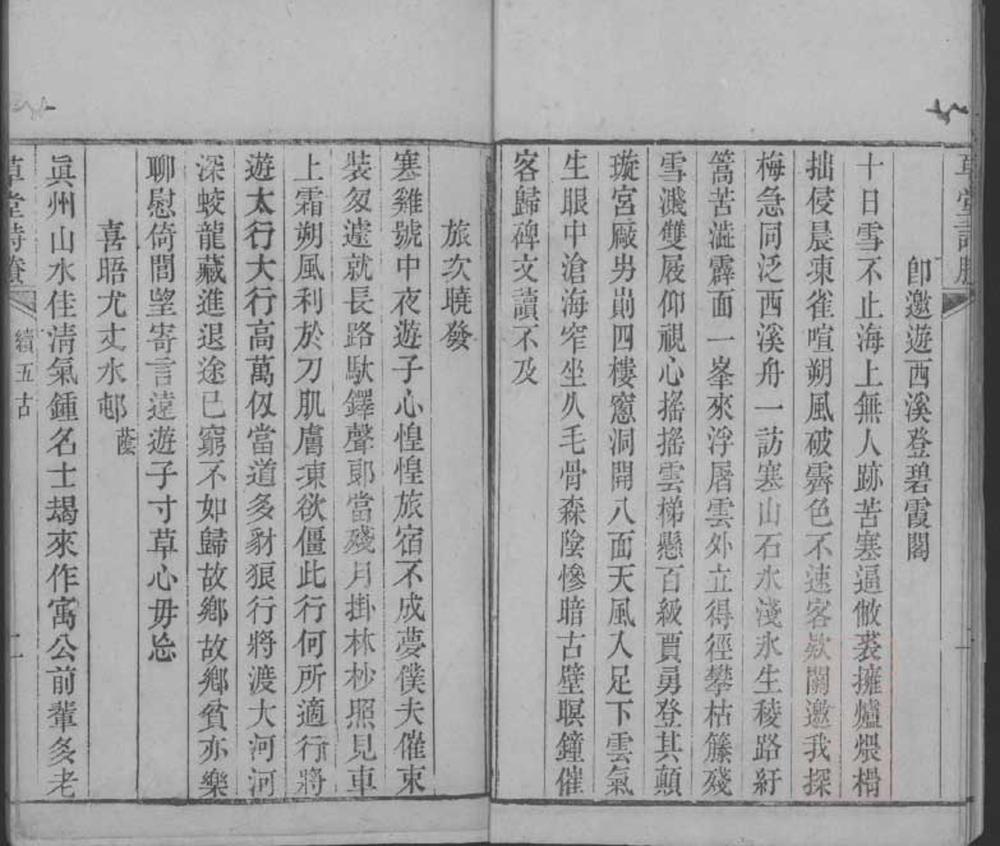 草堂詩賸
卽邀遊西溪登碧霞閣
十日雪不止海上無人跡苦寒逼敝裘擁爐煨榾
拙侵晨凍雀喧朔風破霽色不速客欵關邀我探
梅急同泛西溪舟一訪寒山石水淺氷生稜路紆
篙苦澁霹面一峯來浮屠雲外立得徑攀枯籐殘
雪濺雙屐仰視心搖搖雲梯懸百級賈勇登其顛
璇宮厰屴崱四樓窻洞開八面天風入足下雲氣
生眼中滄海窄坐久毛骨森陰慘暗古壁暝鐘催
客歸碑文讀不及
旅次曉發
寒雞號中夜遊子心惶惶旅宿不成夢僕夫催束
裝匆遽就長路馱鐸聲郞當殘月掛林杪照見車
上霜朔風利於刀肌膚凍欲僵此行何所適行將
遊太行大行高萬仭當道多豺狼行將渡大河河
深蛟龍藏進退途已窮不如歸故鄉故鄉貧亦樂
聊慰倚閭望寄言遠遊子寸草心毋忘
喜晤尤丈水邨蔭
眞州山水佳淸氣鍾名士朅來作寓公前輩多老
草堂詩賸 續五古 二